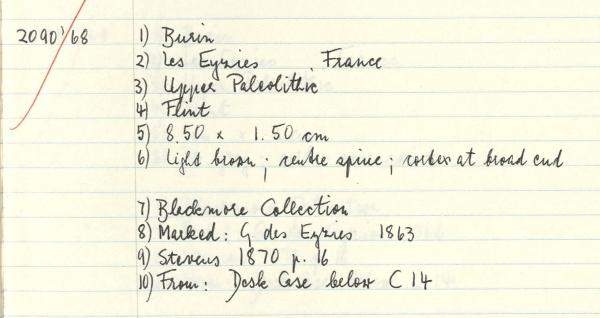 2090'68 1) Burin
2) Les Eyzies France
3) Upper Paleolithic
4) Flint
5) 8.50 x 1.50 cm
6) Light brown; centre spine; cortex at broad end
7) Blackmore Collection
8) Marked: G. des Eyzies 1863
9) Stevens 1870 p. 16
10) From: Desk Case below C 14